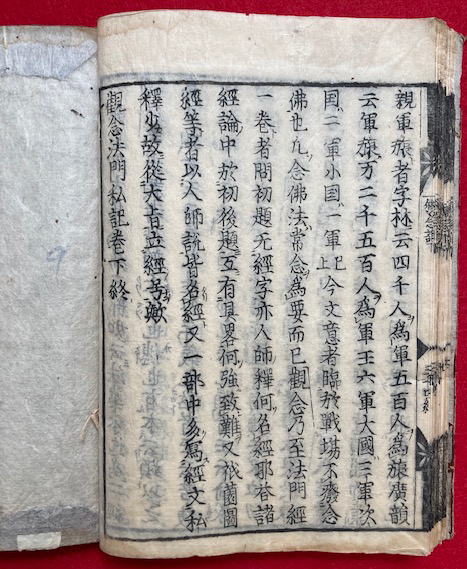 親軍旅者字林云四千人為軍五百人為旅廣韻
云軍旅万二千五百人為軍王六軍大國三軍次
国二軍小国一軍已上今文意者臨於戰場不廢念
佛也凡念佛法常念為要而已觀念乃至法門經
一卷者問初題无經字亦人師釋何名經耶答諸
經論中於初後題互有具畧何強致難又祇薗圖
經等者以人師說皆名經又一部中多寫經文私
釋少故從大旨立經号歟
觀念法門私記卷下終